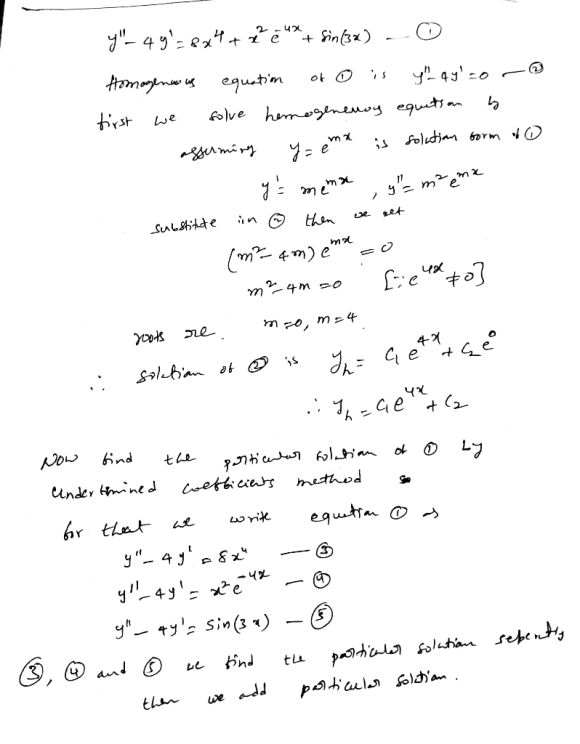 y'' - 4y' = 8x⁴ + x² e^{-4x} + Sin(3x) — ①
Homogeneous equation of ① is y'' - 4y' = 0 — ②
first we solve homogeneous equation by
assuming y = e^{mx} is solution form of ①
y' = m e^{mx} , y'' = m² e^{mx}
substitute in ② then we get
(m² - 4m) e^{mx} = 0
m² - 4m = 0 [∵ e^{4x} ≠ 0]
roots are. m = 0, m = 4
∴ solution of ② is y_h = C₁ e^{4x} + C₂ e⁰
∴ y_h = C₁ e^{4x} + C₂
Now find the particular solution of ① by
undertimined coefficients method
for that we write equation ① as
y'' - 4y' = 8x⁴ — ③
y'' - 4y' = x² e^{-4x} — ④
y'' - 4y' = Sin(3x) — ⑤
③, ④ and ⑤ we find the particular solution
then we add particular solution.